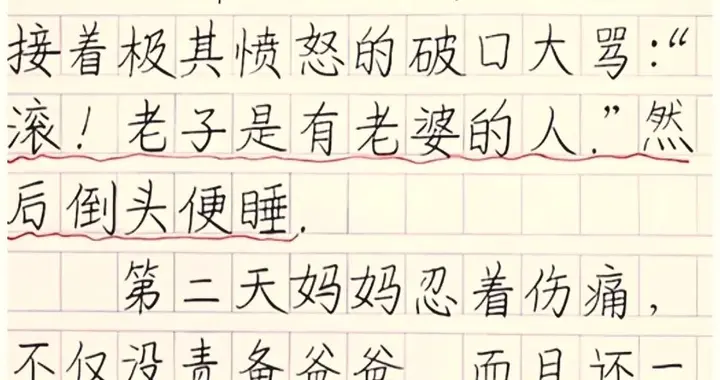 接着极其愤怒的破口大骂:“
滚!老子是有老婆的人.”然
后倒头便睡.
第二天妈妈忍着伤痛,
不仅没责备爸爸 而且还一